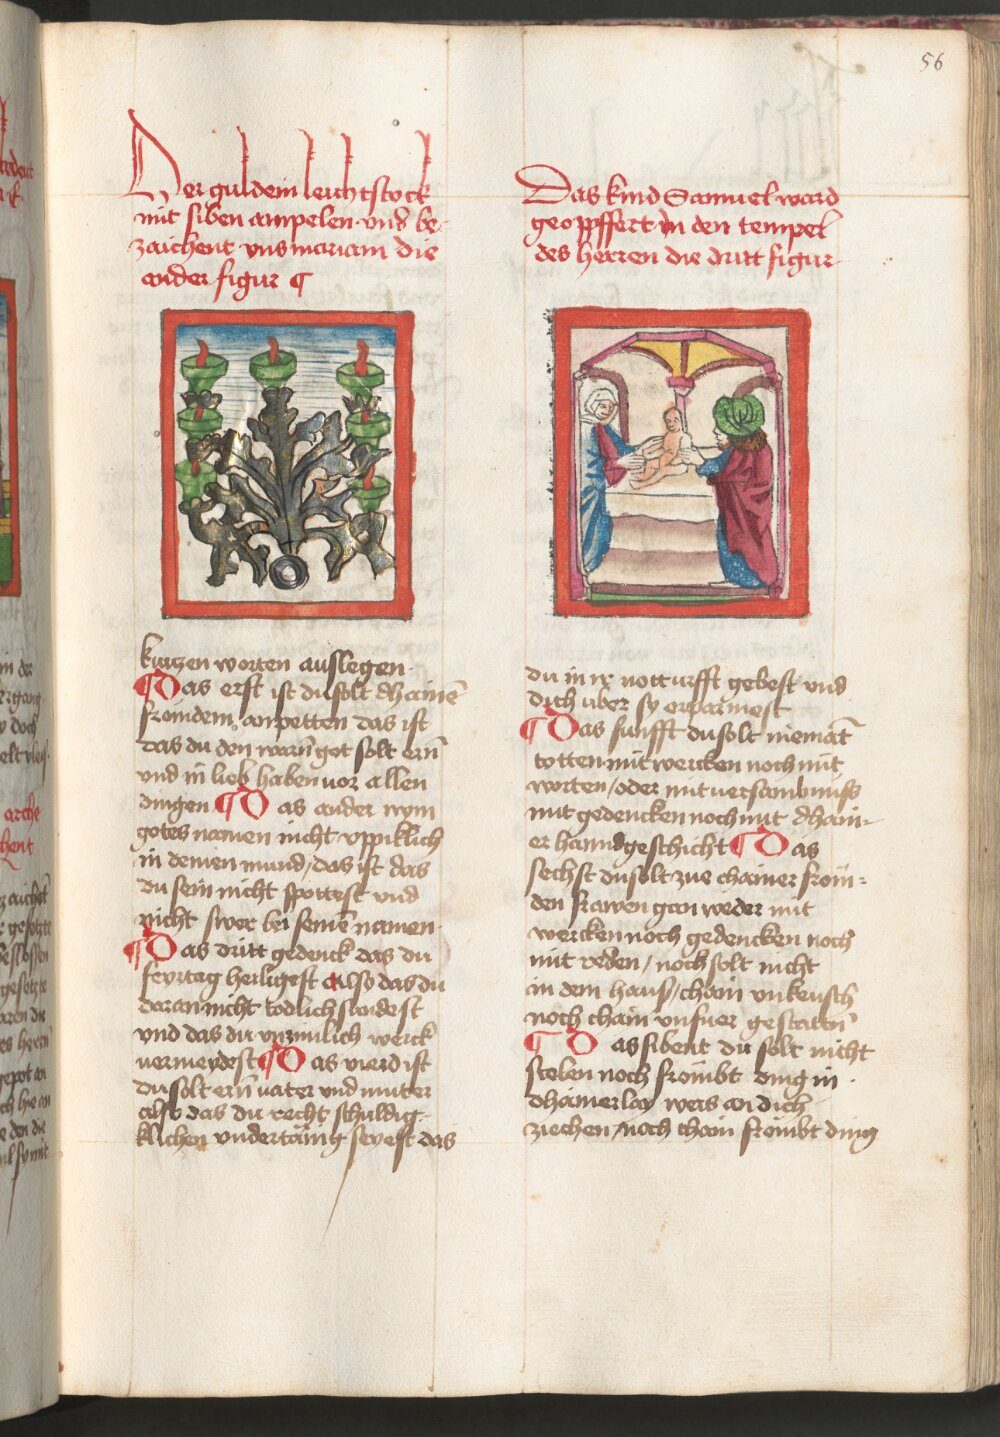 56
Der guldein leuchtstock
mit siben ampelen vnd be-
zaichent vns mariam die
ander figur ¶
kurtzen worten auslegen
¶ Das erst ist du solt dhainē
frömdem anpetten das ist
das du den warn̄ got solt ern̄
vnd in lieb haben vor allen
dingen ¶ Das ander nym
gotes namen nicht vppiklich
in deinen mund / das ist das
du sein nicht spottest vnd
nicht swer bei seinē namen
¶ Das dritt gedenck das du
feyrtag heiligest Also das du
daran nicht todlich sundest
vnd das du vnzimlich werck
vermeydest ¶ Das vierd ist
du solt ern̄ vater vnd muter
also das du recht schuldig-
klichen vndertänig seyest das
Das kind Samuel ward
geopffert in den tempel
des herren die dritt figur
du in ir notturfft gebest vnd
dich vber sy erparmest
¶ Das funfft du solt niemāt
totten mit wercken noch mit
worten / oder mit versaumnuss
mit gedencken noch mit dhain-
er hanndgeschicht ¶ Das
sechst du solt zue chainer fröm-
den frawen gan weder mit
wercken noch gedencken noch
mit reden / noch solt nicht
in dem haus / chain vnkeusch
noch chain vnfuer gestatn̄
¶ Das sibent du solt nicht
stelen noch frömbt ding in
dhainerlay weis an dich
ziechen / noch chain frömbt ding